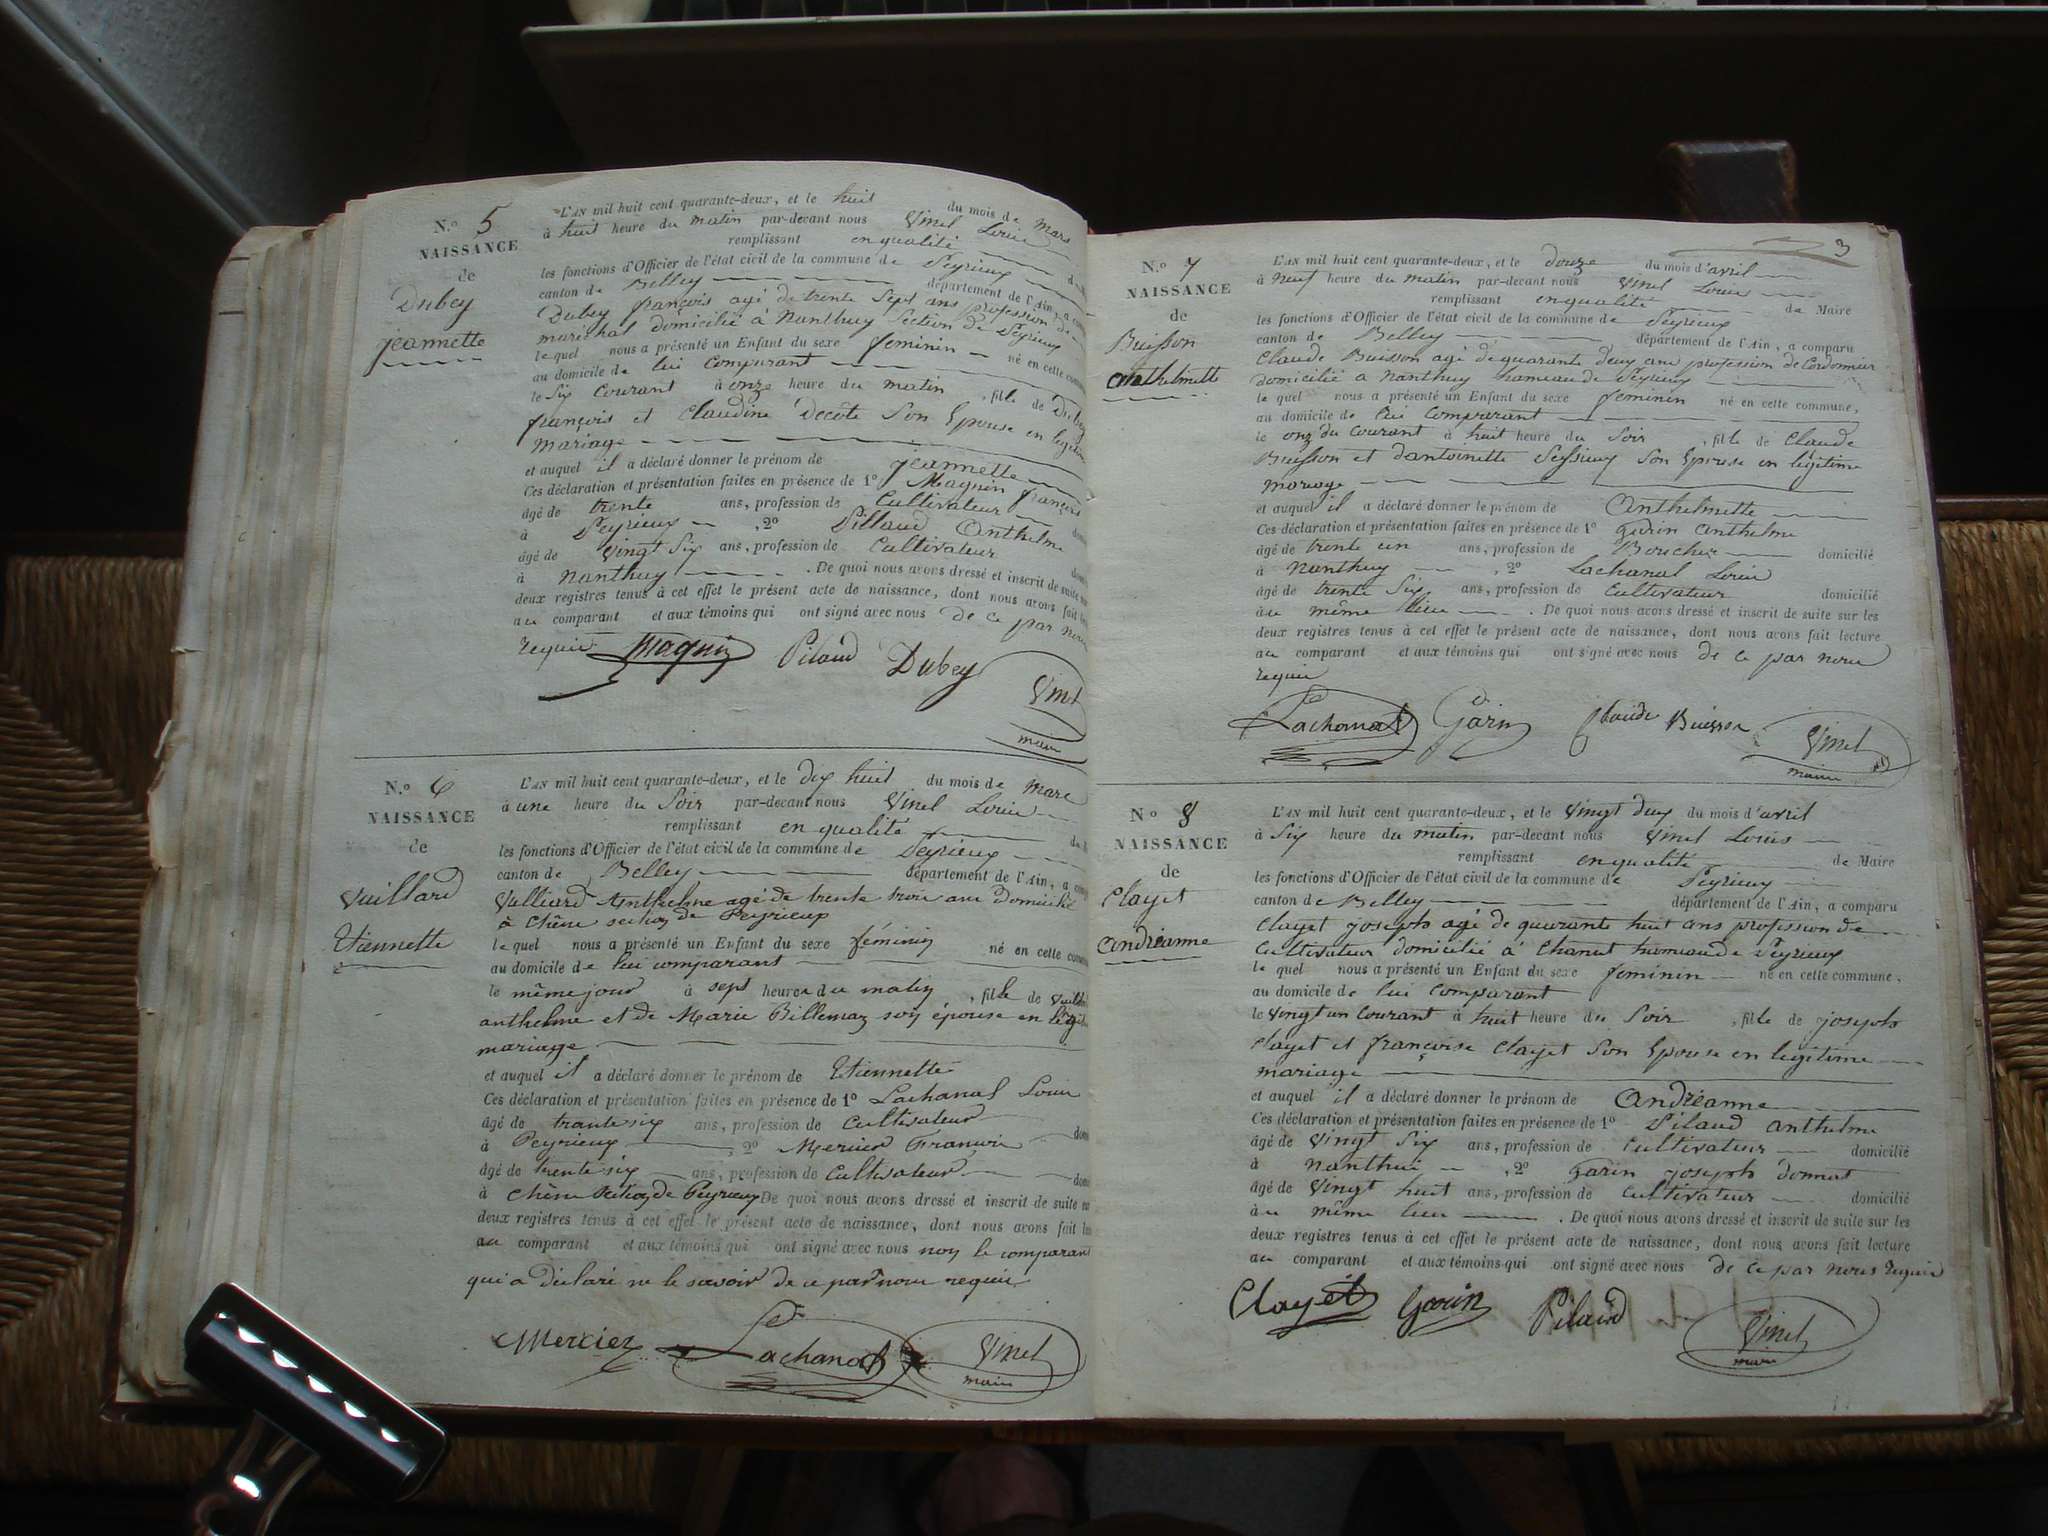 N.º 5
NAISSANCE
de
Dubey
jeannette
L'AN mil huit cent quarante-deux, et le huit du mois de mars
à huit heure du matin par-devant nous Vinel Louis
remplissant en qualité
les fonctions d'Officier de l'état civil de la commune de Peyrieux
canton de Belley département de l'Ain, a
Dubey françois agé de trente Sept ans profession de
maréchal domicilié à Nanthuy Section de Peyrieux
le quel nous a présenté un Enfant du sexe feminin né en cette
au domicile de lui comparant
le Six Courant à onze heure du matin , fille de Dubey
françois et Claudine Decôte Son Epouse en legitime
mariage
et auquel il a déclaré donner le prénom de jeannette
Ces déclaration et présentation faites en présence de 1º Maguin françois
âgé de trente ans, profession de Cultivateur
à Peyrieux , 2º Pillaud Anthelme
âgé de vingt Six ans, profession de Cultivateur
à Nanthuy . De quoi nous avons dressé et inscrit de suite
deux registres tenus à cet effet le présent acte de naissance, dont nous avons fait
au comparant et aux témoins qui ont signé avec nous de ce par nous
requis Maguin Pilaud Dubey Vinel
maire
N.º 6
NAISSANCE
de
Vuillard
Etiennette
L'AN mil huit cent quarante-deux, et le dix huit du mois de Mars
à une heure du Soir par-devant nous Vinel Louis
remplissant en qualité
les fonctions d'Officier de l'état civil de la commune de Peyrieux
canton de Belley département de l'Ain, a
Vulliard Anthelme agé de trente trois ans Domicilié
à Chêne section de Peyrieux
le quel nous a présenté un Enfant du sexe féminin né en cette
au domicile de lui comparant
le même jour à sept heures du matin , fille de
anthelme et de Marie Billemaz son épouse en légitime
mariage
et auquel il a déclaré donner le prénom de Etiennette
Ces déclaration et présentation faites en présence de 1º Lachanal Louis
âgé de trante six ans, profession de Cultivateur
à Peyrieux , 2º Mercier François
âgé de trente six ans, profession de Cultivateur
à Chêne Section de Peyrieux De quoi nous avons dressé et inscrit de suite
deux registres tenus à cet effet le présent acte de naissance, dont nous avons fait
au comparant et aux témoins qui ont signé avec nous non le comparant
qui a déclaré ne le savoir de ce par nous requis
Mercier Lachanal Vinel
maire
3
N.º 7
NAISSANCE
de
Buisson
Anthelmette
L'AN mil huit cent quarante-deux, et le douze du mois d'avril
à neuf heure du matin par-devant nous Vinel Louis
remplissant en qualité de Maire
les fonctions d'Officier de l'état civil de la commune de Peyrieux
canton de Belley département de l'Ain, a comparu
Claude Buisson agé de quarante deux ans profession de Cordonnier
domicilié a Nanthuy hameau de Peyrieux
le quel nous a présenté un Enfant du sexe feminin né en cette commune,
au domicile de lui comparant
le onz du Courant à huit heure du Soir , fille de Claude
Buisson et dantoinette Seyssieux Son Epouse en légitime
mariage
et auquel il a déclaré donner le prénom de Anthelmette
Ces déclaration et présentation faites en présence de 1º garin anthelme
âgé de trente un ans, profession de Boucher domicilié
à Nanthuy , 2º Lachanal Louis
âgé de trente Six ans, profession de Cultivateur domicilié
à au même lieu . De quoi nous avons dressé et inscrit de suite sur les
deux registres tenus à cet effet le présent acte de naissance, dont nous avons fait lecture
au comparant et aux témoins qui ont signé avec nous de ce par nous
requis
Lachanal Garin Claude Buisson Vinel
maire
N.º 8
NAISSANCE
de
Clayet
andréanne
L'AN mil huit cent quarante-deux, et le vingt deux du mois d'avril
à Six heure du matin par-devant nous Vinel Louis
remplissant en qualité de Maire
les fonctions d'Officier de l'état civil de la commune de Peyrieux
canton de Belley département de l'Ain, a comparu
Clayet joseph agé de quarante huit ans profession de
Cultivateur domicilié à Chanut hameau de Peyrieux
le quel nous a présenté un Enfant du sexe feminin né en cette commune,
au domicile de lui comparant
le vingt un Courant à huit heure du Soir , fille de joseph
Clayet et françoise Clayet Son Epouse en legitime
mariage
et auquel il a déclaré donner le prénom de Andréanne
Ces déclaration et présentation faites en présence de 1º Pilaud anthelme
âgé de vingt Six ans, profession de Cultivateur domicilié
à nanthui , 2º garin joseph donnat
âgé de vingt huit ans, profession de Cultivateur domicilié
à au même lieu . De quoi nous avons dressé et inscrit de suite sur les
deux registres tenus à cet effet le présent acte de naissance, dont nous avons fait lecture
au comparant et aux témoins qui ont signé avec nous de ce par nous requis
Clayet Garin Pilaud Vinel
maire